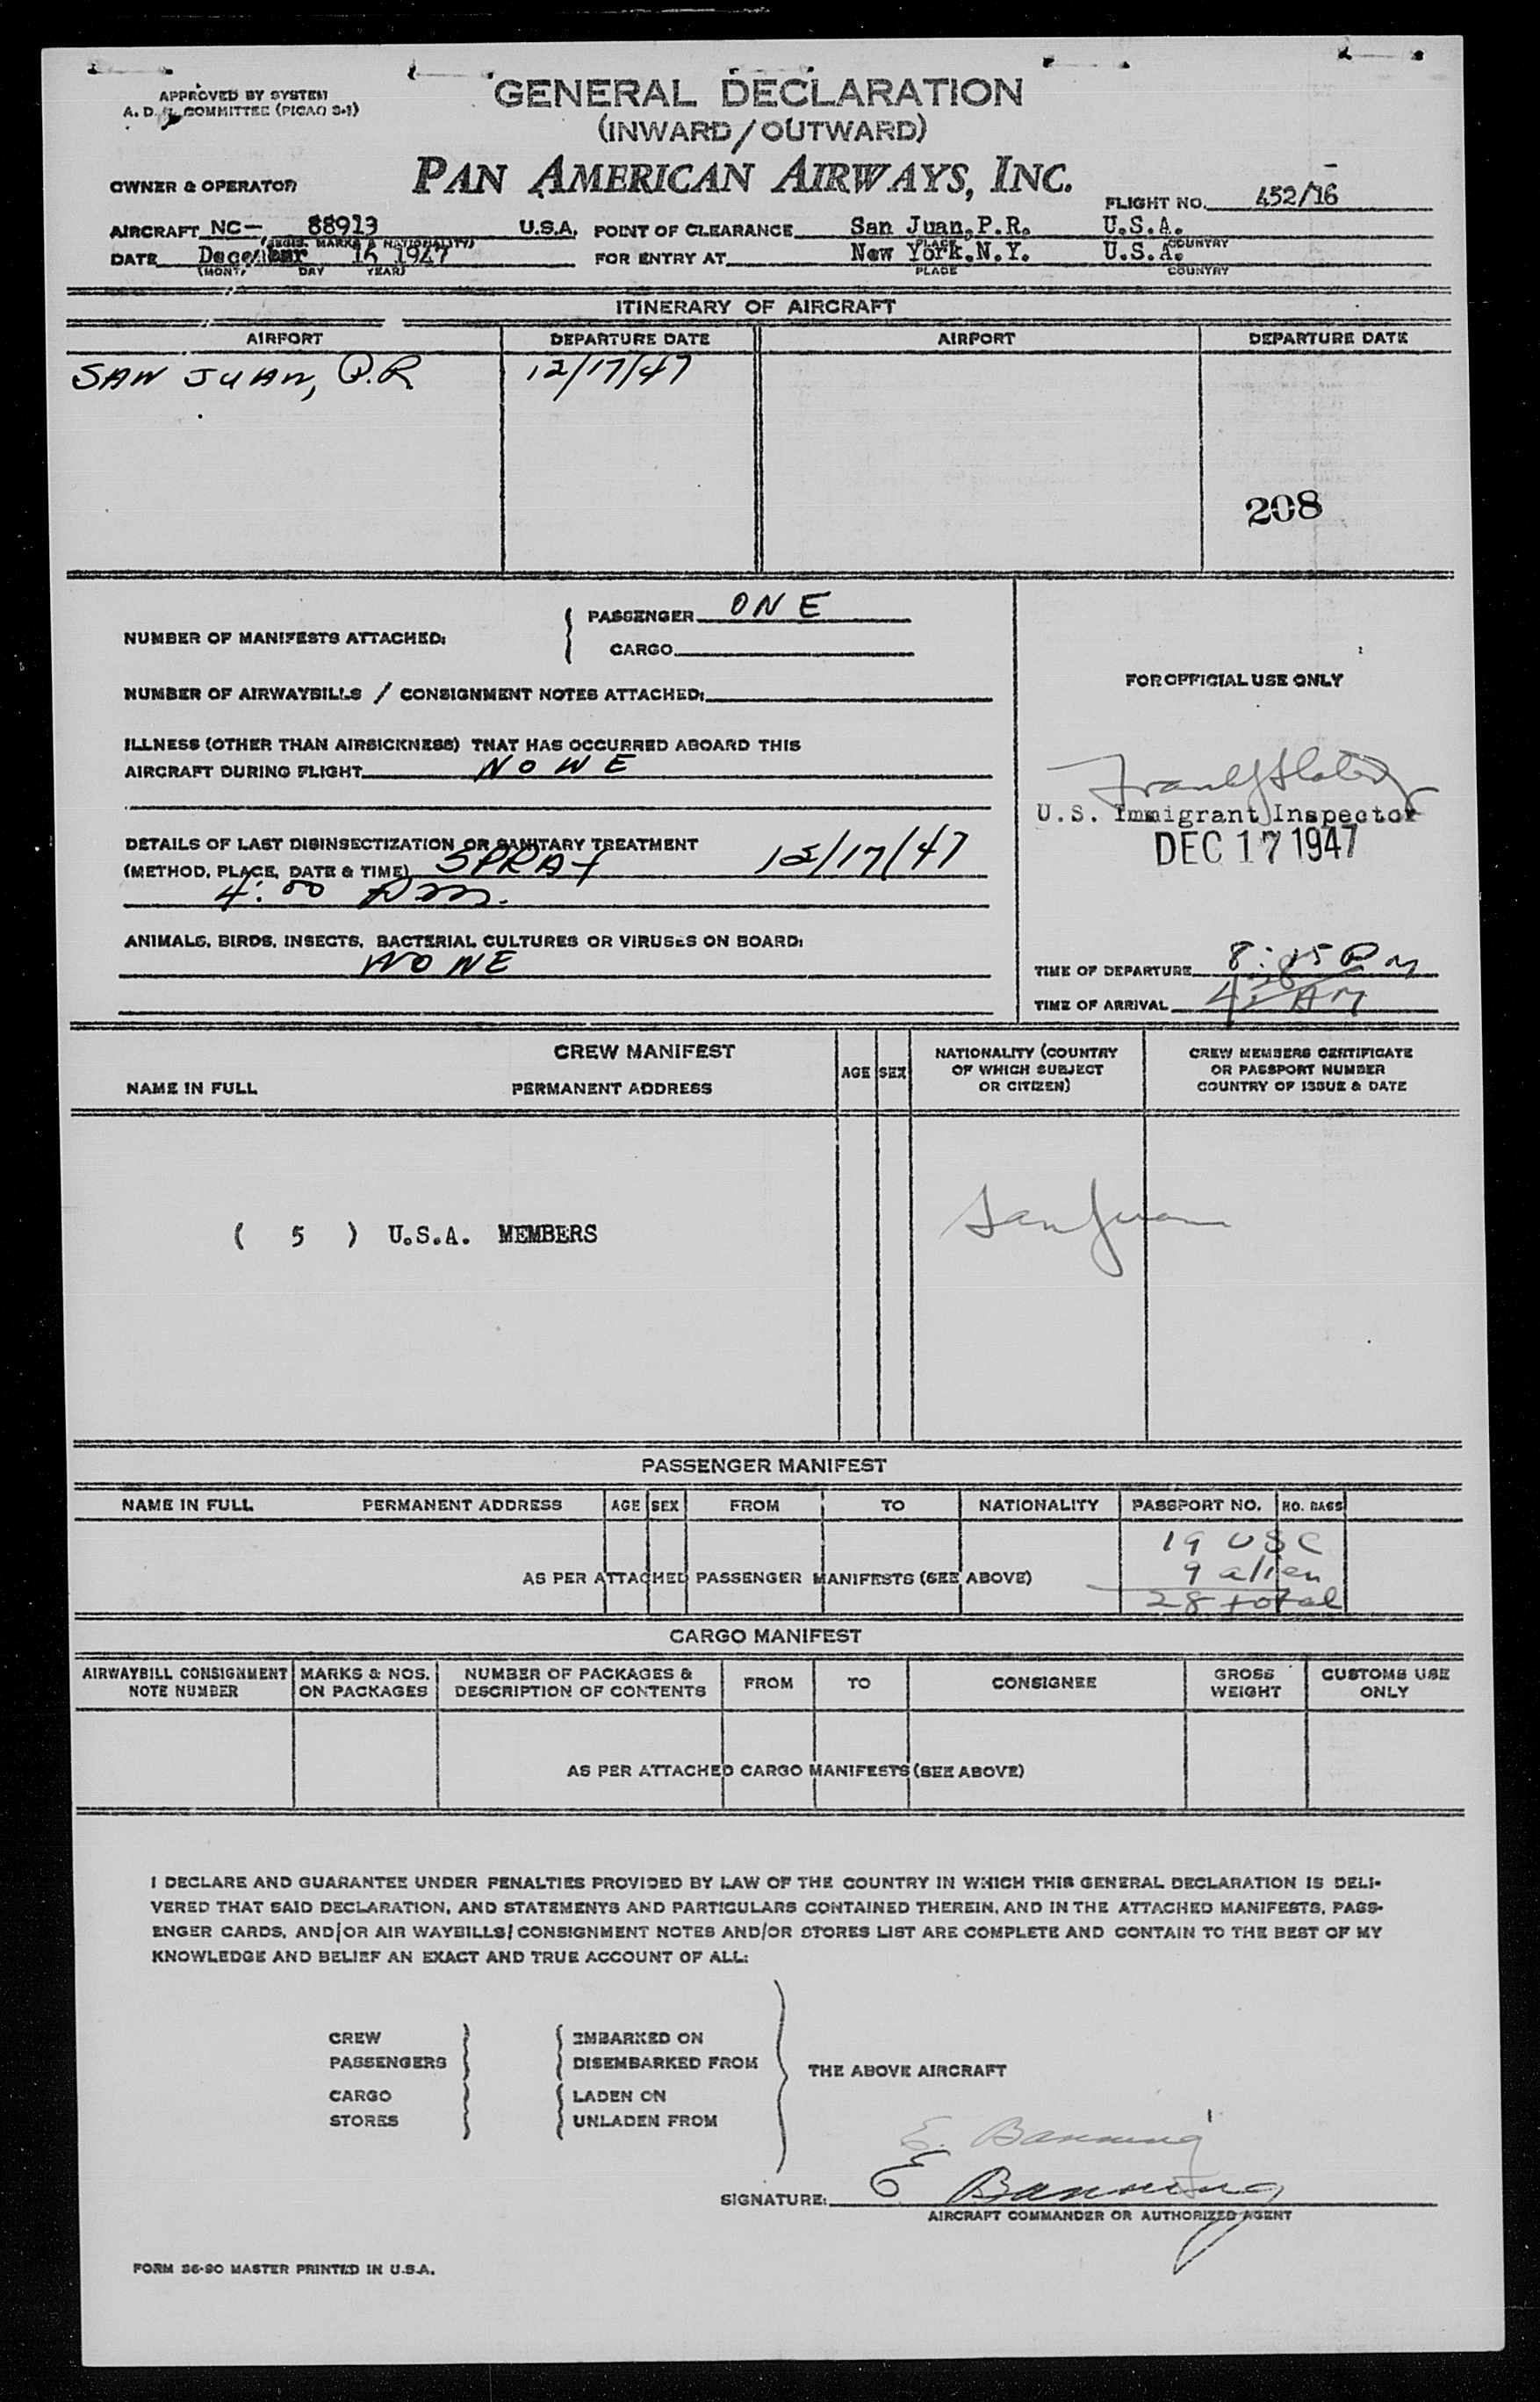 APPROVED BY SYSTEM
A. D. & COMMITTEE (PICAO 3-1)
GENERAL DECLARATION
(INWARD/OUTWARD)
PAN AMERICAN AIRWAYS, INC.
OWNER & OPERATOR
FLIGHT NO. 452/16
AIRCRAFT NC- 88913 U.S.A. POINT OF CLEARANCE San Juan, P.R. U.S.A.
(REGIS. MARKS & NATIONALITY) PLACE COUNTRY
DATE December 16 1947 FOR ENTRY AT New York, N.Y. U.S.A.
(MONT, DAY YEAR) PLACE COUNTRY
ITINERARY OF AIRCRAFT
AIRPORT DEPARTURE DATE AIRPORT DEPARTURE DATE
SAN JUAN, P.R 12/17/47
208
NUMBER OF MANIFESTS ATTACHED: PASSENGER ONE
CARGO
FOR OFFICIAL USE ONLY
NUMBER OF AIRWAYBILLS / CONSIGNMENT NOTES ATTACHED:
ILLNESS (OTHER THAN AIRSICKNESS) THAT HAS OCCURRED ABOARD THIS
AIRCRAFT DURING FLIGHT NONE
U.S. Immigrant Inspector
DEC 17 1947
DETAILS OF LAST DISINSECTIZATION OR SANITARY TREATMENT
(METHOD, PLACE, DATE & TIME) SPRAY 12/17/47
4:00
ANIMALS, BIRDS, INSECTS, BACTERIAL CULTURES OR VIRUSES ON BOARD:
NONE
TIME OF DEPARTURE 8:15 PM
TIME OF ARRIVAL AM
CREW MANIFEST
NAME IN FULL PERMANENT ADDRESS AGE SEX NATIONALITY (COUNTRY OF WHICH SUBJECT OR CITIZEN) CREW MEMBERS CERTIFICATE OR PASSPORT NUMBER COUNTRY OF ISSUE & DATE
San Juan
( 5 ) U.S.A. MEMBERS
PASSENGER MANIFEST
NAME IN FULL PERMANENT ADDRESS AGE SEX FROM TO NATIONALITY PASSPORT NO. NO. BAGS
19 USC
9 alien
AS PER ATTACHED PASSENGER MANIFESTS (SEE ABOVE)
28 total
CARGO MANIFEST
AIRWAYBILL CONSIGNMENT NOTE NUMBER MARKS & NOS. ON PACKAGES NUMBER OF PACKAGES & DESCRIPTION OF CONTENTS FROM TO CONSIGNEE GROSS WEIGHT CUSTOMS USE ONLY
AS PER ATTACHED CARGO MANIFESTS (SEE ABOVE)
I DECLARE AND GUARANTEE UNDER PENALTIES PROVIDED BY LAW OF THE COUNTRY IN WHICH THIS GENERAL DECLARATION IS DELI-
VERED THAT SAID DECLARATION, AND STATEMENTS AND PARTICULARS CONTAINED THEREIN, AND IN THE ATTACHED MANIFESTS, PASS-
ENGER CARDS, AND/OR AIR WAYBILLS/CONSIGNMENT NOTES AND/OR STORES LIST ARE COMPLETE AND CONTAIN TO THE BEST OF MY
KNOWLEDGE AND BELIEF AN EXACT AND TRUE ACCOUNT OF ALL:
CREW EMBARKED ON
PASSENGERS DISEMBARKED FROM
THE ABOVE AIRCRAFT
CARGO LADEN ON
STORES UNLADEN FROM
E. Banning
SIGNATURE: E Banning
AIRCRAFT COMMANDER OR AUTHORIZED AGENT
FORM 36-90 MASTER PRINTED IN U.S.A.